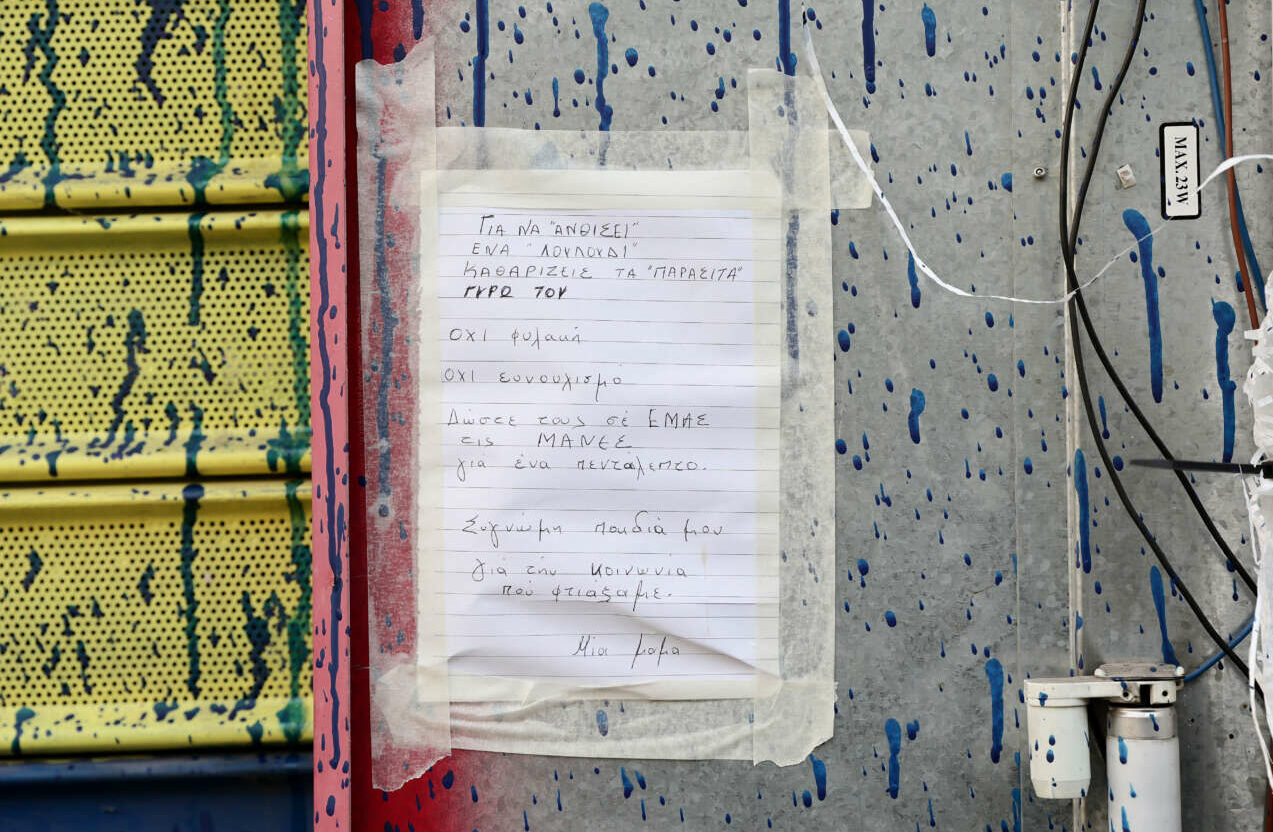 ΓΙΑ ΝΑ "ΑΝΘΙΣΕΙ"
ΕΝΑ "ΛΟΥΛΟΥΔΙ"
ΚΑΘΑΡΙΖΕΙΣ ΤΑ "ΠΑΡΑΣΙΤΑ"
ΓΥΡΩ ΤΟΥ
ΟΧΙ φυλακή
ΟΧΙ ευνουχισμό
Δώστε τους σέ ΕΜΑΣ
τις ΜΑΝΕΣ
γιά ένα πενταλεπτο.
Συγνώμη παιδιά μου
γιά τήν κοινωνία
πού φτιάξαμε.
Μία μαμα
MAX.23W